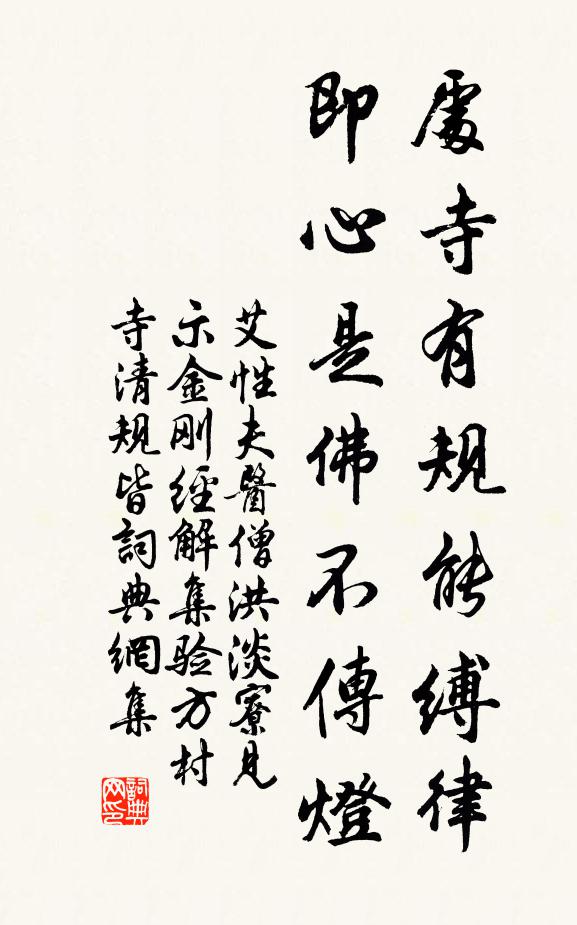 處寺有規能縛律
即心是佛不傳燈
艾性夫醫僧洪淡寮見
示金刚經解集验方村
寺清規皆詞典網集
詞典网印